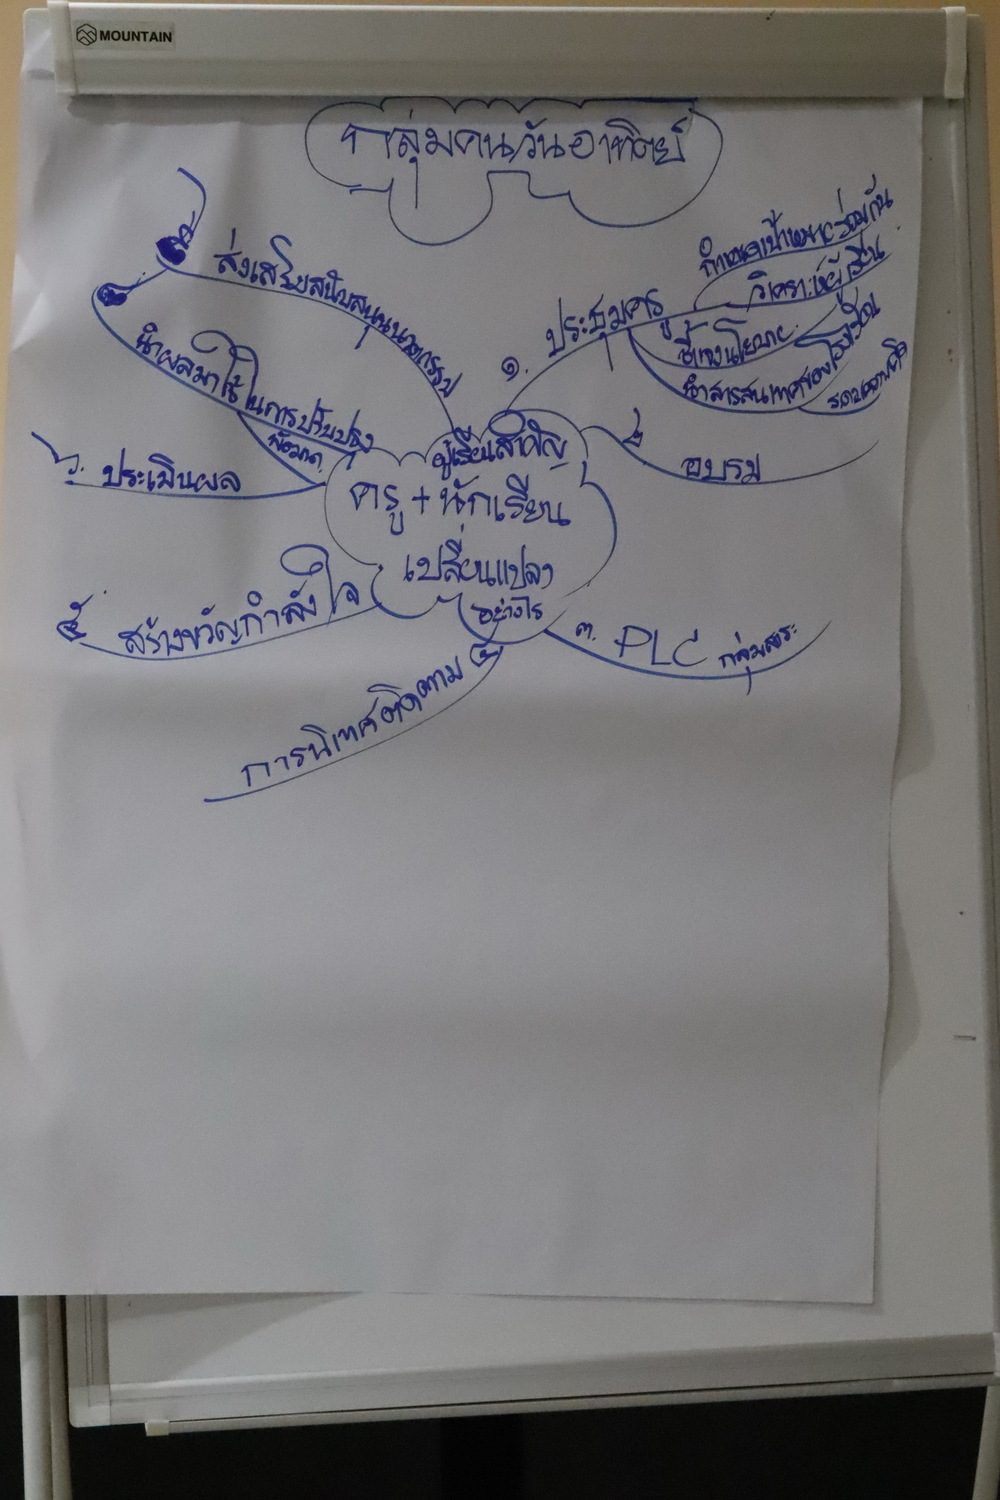 MOUNTAIN
กลุ่มคนวันอาทิตย์
ผู้เรียนสำคัญ
ครู + นักเรียน
เปลี่ยนแปลง
อย่างไร
๑. ประชุมครู
กำหนดเป้าหมายร่วมกัน
วิเคราะห์ผู้เรียน
ชี้แจงนโยบาย
นำสารสนเทศของโรงเรียน
๒
อบรม
๓. PLC กลุ่มสาระ
๔
การนิเทศติดตาม
๕
สร้างขวัญกำลังใจ
๖. ประเมินผล
๗
นำผลมาใช้ในการปรับปรุง
พัฒนา
๘
ส่งเสริมสนับสนุนนวัตกรรม